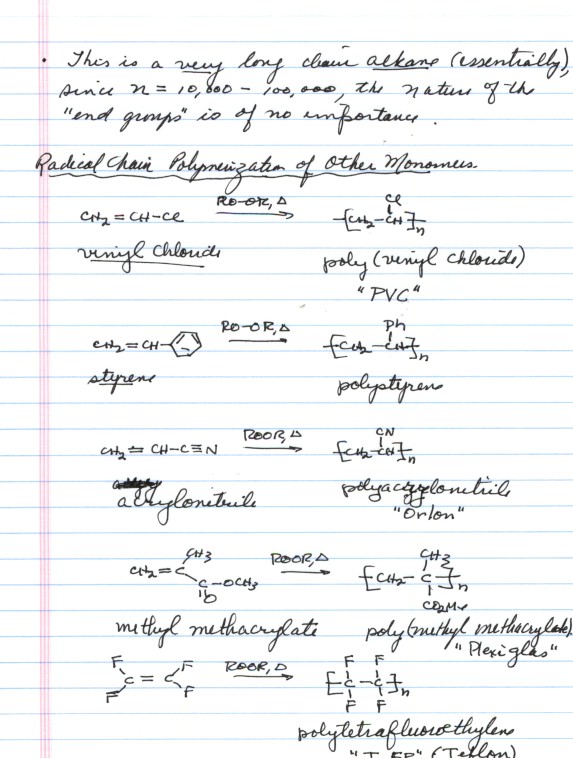 • This is a very long chain alkane (essentially),
since n = 10,000 - 100,000, the nature of the
"end groups" is of no importance.
Radical Chain Polymerization of Other Monomers
CH2 = CH-Cl RO-OR, Δ -[CH2-CH]-n Cl
vinyl chloride poly (vinyl chloride)
"PVC"
CH2 = CH- RO-OR, Δ -[CH2-CH]-n Ph
styrene polystyrene
CH2 = CH-C≡N ROOR, Δ -[CH2-CH]-n CN
acrylonitrile polyacrylonitrile
"Orlon"
CH2=C CH3 C-OCH3 O ROOR, Δ [CH2-C]-n CH3 CO2Me
methyl methacrylate poly(methyl methacrylate)
"Plexiglas"
F F C = C F F ROOR, Δ -[C-C]-n F F F F
polytetrafluoroethylene
(Teflon)